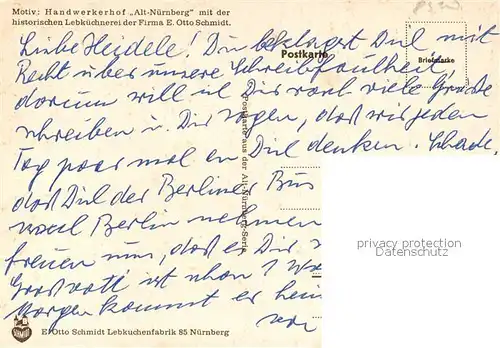 Motiv: Handwerkerhof „Alt-Nürnberg" mit der
historischen Lebküchnerei der Firma E. Otto Schmidt.
Postkarte
Briefmarke
Liebe Heidele! Du beklagst Dich mit
Recht über unsere Schreibfaulheit,
darum will ich Dir rasch viele Grüße
schreiben u. Dir sagen, daß wir jeden
Tag paar mal an Dich denken. Schade,
daß Dich der Berliner Bus
nach Berlin nehmen
freuen uns, daß es Dir
ist schon
Morgen kommt er heim
von
Postkarte aus der Alt-Nürnberg-Serie
privacy protection
Datenschutz
SCHMIDT
E. Otto Schmidt Lebkuchenfabrik 85 Nürnberg